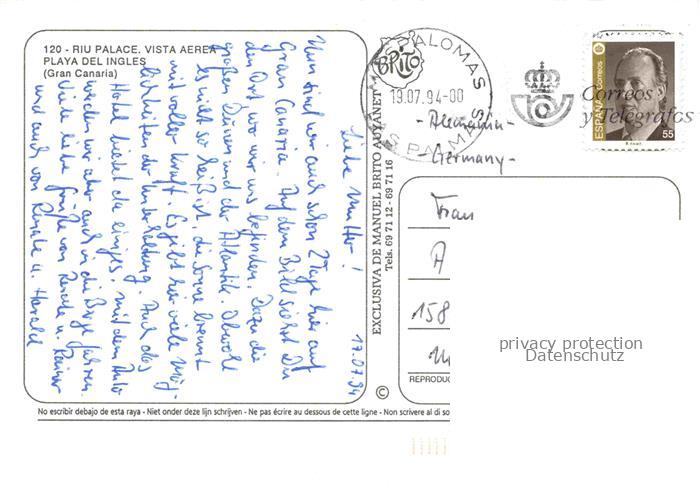 120 - RIU PALACE. VISTA AEREA
PLAYA DEL INGLES
(Gran Canaria)
17.07.94
Liebe Mutter!
Nun sind wir auch schon 2 Tage hier auf
Gran Canaria. Auf dem Bild siehst Du
den Ort wo wir uns befinden. Dazu die
großen Dünen und der Atlantik. Obwohl
es nicht so heiß ist, die Sonne brennt
mit voller Kraft. Es gibt hier viele Mög-
lichkeiten der Unterhaltung. Auch das
Hotel bietet da einiges. Mit dem Auto
werden wir aber auch in die Berge fahren.
Viele liebe Grüße von Renate u. Rainer
und auch von Renate u. Harald
EXCLUSIVA DE MANUEL BRITO AUYANET
Tels. 69 71 12 - 69 71 16
BRITO
©
PALOMAS
19.07.94-00
S PALMAS
Correos
y Telégrafos
ESPAÑA Correos
55
- Alemania -
- Germany -
Frau
A
158
REPRODUC
privacy protection
Datenschutz
No escribir debajo de esta raya - Niet onder deze lijn schrijven - Ne pas écrire au dessous de cette ligne - Non scrivere al di so